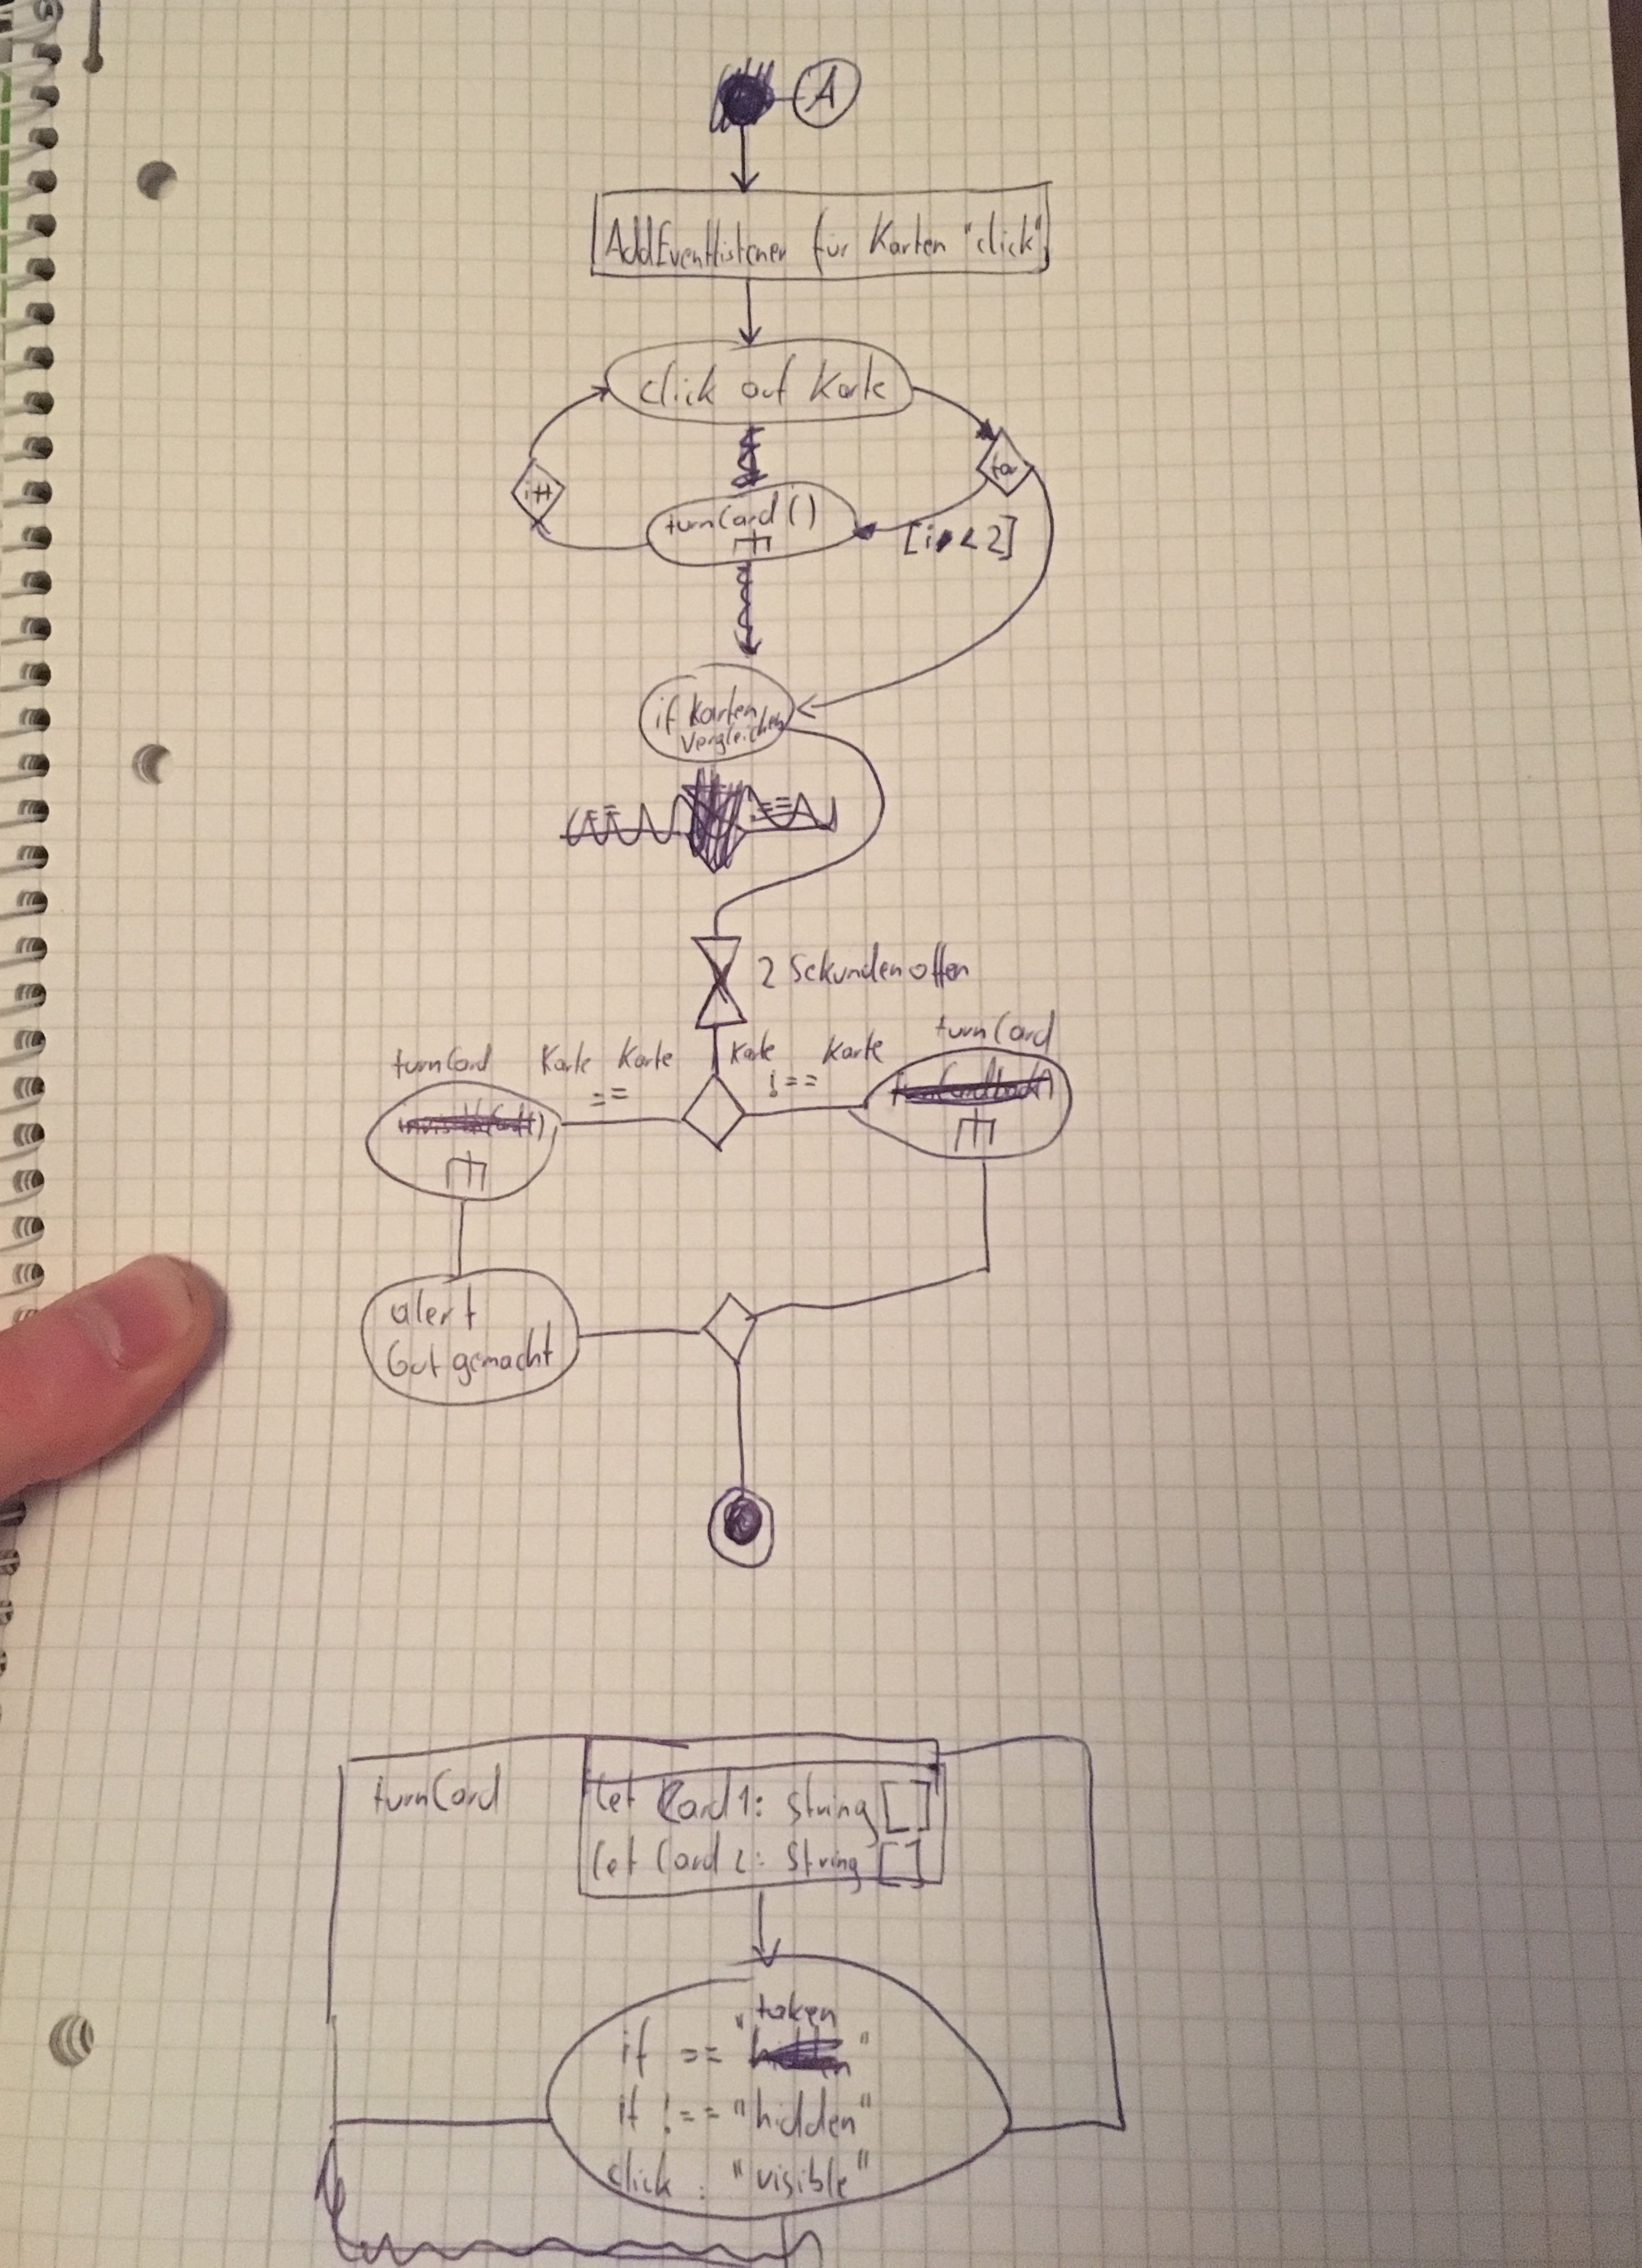 A
AddEventlistener für Karten "click"
click auf Karte
for
i++
turnCard()
[i < 2]
if Karten
vergleichen
2 Sekunden offen
turnCard
turnCard
Karte == Karte
Karte !== Karte
alert
Gut gemacht
turnCard
let Card 1: string []
let Card 2: string []
"taken
if == "
if !== "hidden"
click : "visible"